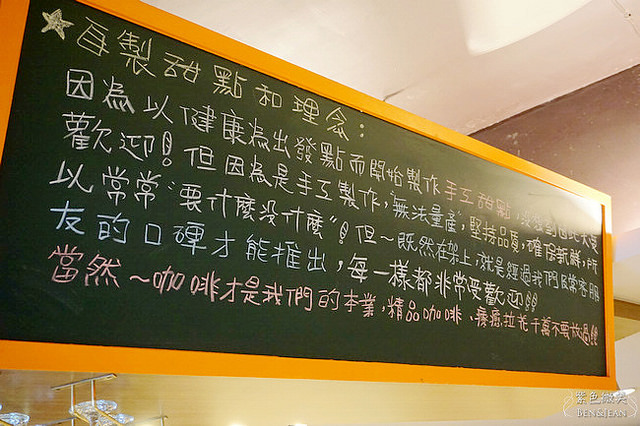 自製甜點和理念：
因為以健康為出發點而開始製作手工甜點，沒想到如此大受
歡迎！但因為是手工製作，"無法量產"，堅持品質，確保新鮮，所
以常常"要什麼沒什麼"！但～既然在架上，就是經過我們及常客朋
友的口碑才能推出，每一樣都非常受歡迎！！
當然～咖啡才是我們的本業，精品咖啡、療癒拉花千萬不要放過
紫色微笑
BEN&JEAN